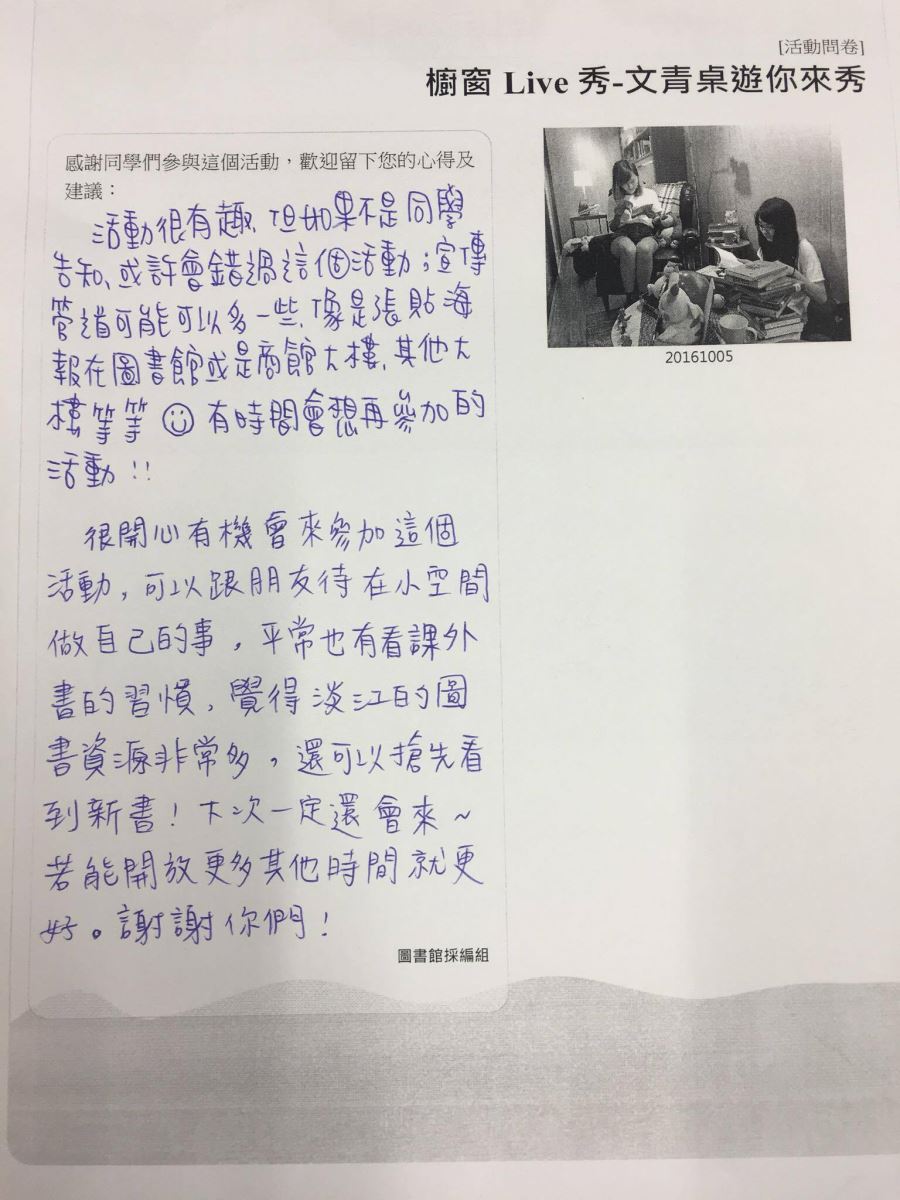 [活動問卷]
櫥窗 Live 秀-文青桌遊你來秀
感謝同學們參與這個活動，歡迎留下您的心得及
建議：
活動很有趣、但如果不是同學
告知、或許會錯過這個活動；宣傳
管道可能可以多一些、像是張貼海
報在圖書館或是商館大樓、其他大
樓等等 ☺ 有時間會想再參加的
活動!!
很開心有機會來參加這個
活動，可以跟朋友待在小空間
做自己的事，平常也有看課外
書的習慣，覺得淡江的圖
書資源非常多，還可以搶先看
到新書！下次一定還會來~
若能開放更多其他時間就更
好。謝謝你們！
圖書館採編組
20161005